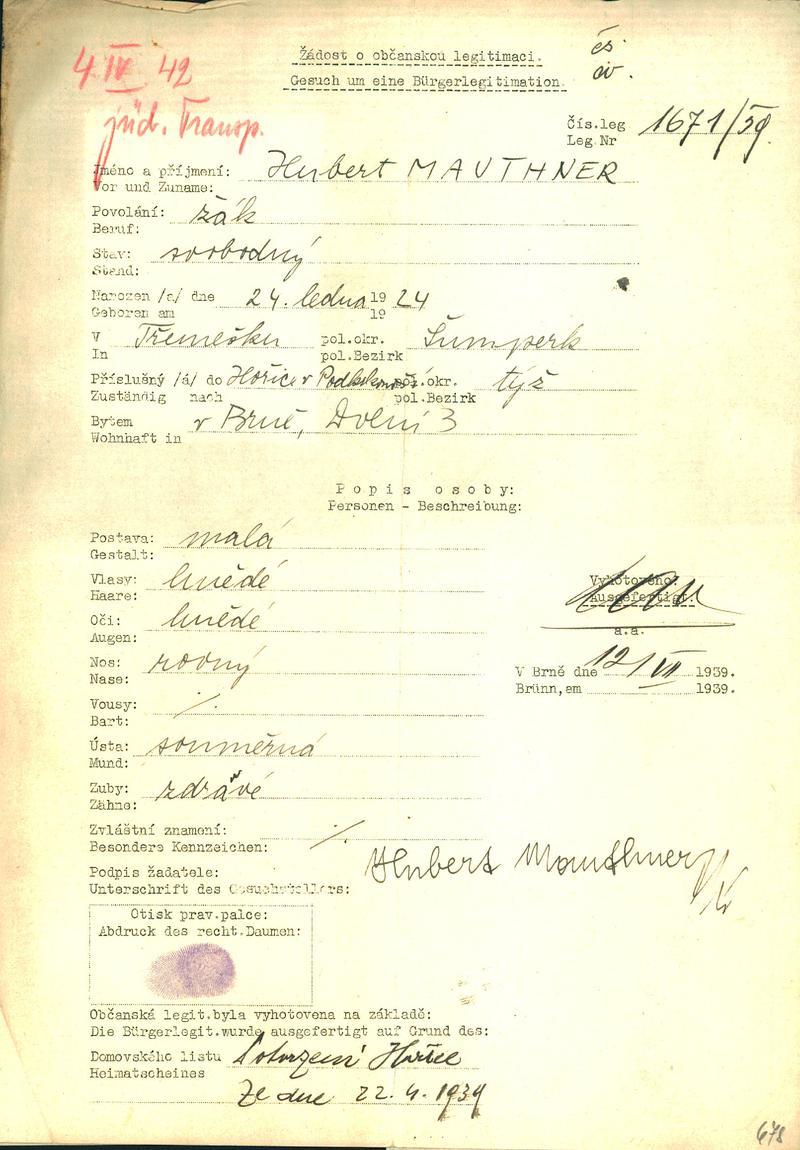 4 IV 42
jüd. Transp.
Žádost o občanskou legitimaci.
Gesuch um eine Bürgerlegitimation.
čs.
Čís.leg 1671/39
Leg.Nr
Jméno a příjmení: Hubert MAUTHNER
Vor und Zuname:
Povolání: žák
Beruf:
Stav: svobodný
Stand:
Narozen /a/ dne 24. ledna 19 24
Geboren am 19
V Třemešku pol.okr. Šumperk
In pol.Bezirk
Příslušný /á/ do Hořice v Podkrkonoší pol.okr. týž
Zuständig nach pol.Bezirk
Bytem v Brně, Dolní 3
Wohnhaft in
Popis osoby:
Personen - Beschreibung:
Postava: malá
Gestalt:
Vlasy: hnědé
Haare:
Oči: hnědé
Augen:
Nos: rovný
Nase:
Vousy: ⁒
Bart:
Ústa: souměrná
Mund:
Zuby: zdravé
Zähne:
Zvláštní znamení: ⁒
Besondere Kennzeichen:
Vyhotoveno:
Ausgefertigt:
a.a.
V Brně dne 12/VII 1939.
Brünn, am 1939.
Podpis žadatele: Hubert Mauthner
Unterschrift des Gesuchstellers:
Otisk prav.palce:
Abdruck des recht.Daumen:
Občanská legit.byla vyhotovena na základě:
Die Bürgerlegit.wurde ausgefertigt auf Grund des:
Domovského listu Potvrzení Hořice
Heimatscheines
Ze dne 22.4.1939
678